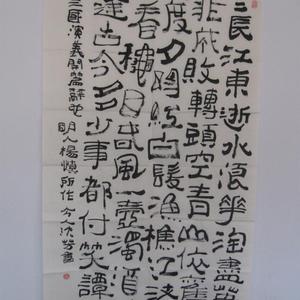 二長江東逝水浪花淘盡英
非成敗轉頭空青山依舊
度夕陽紅白髮漁樵江渚
看穐月春風一壺濁酒
逢古今多少事都付笑譚
三國演義開篇辭也 明人楊慎所作 今人沈書